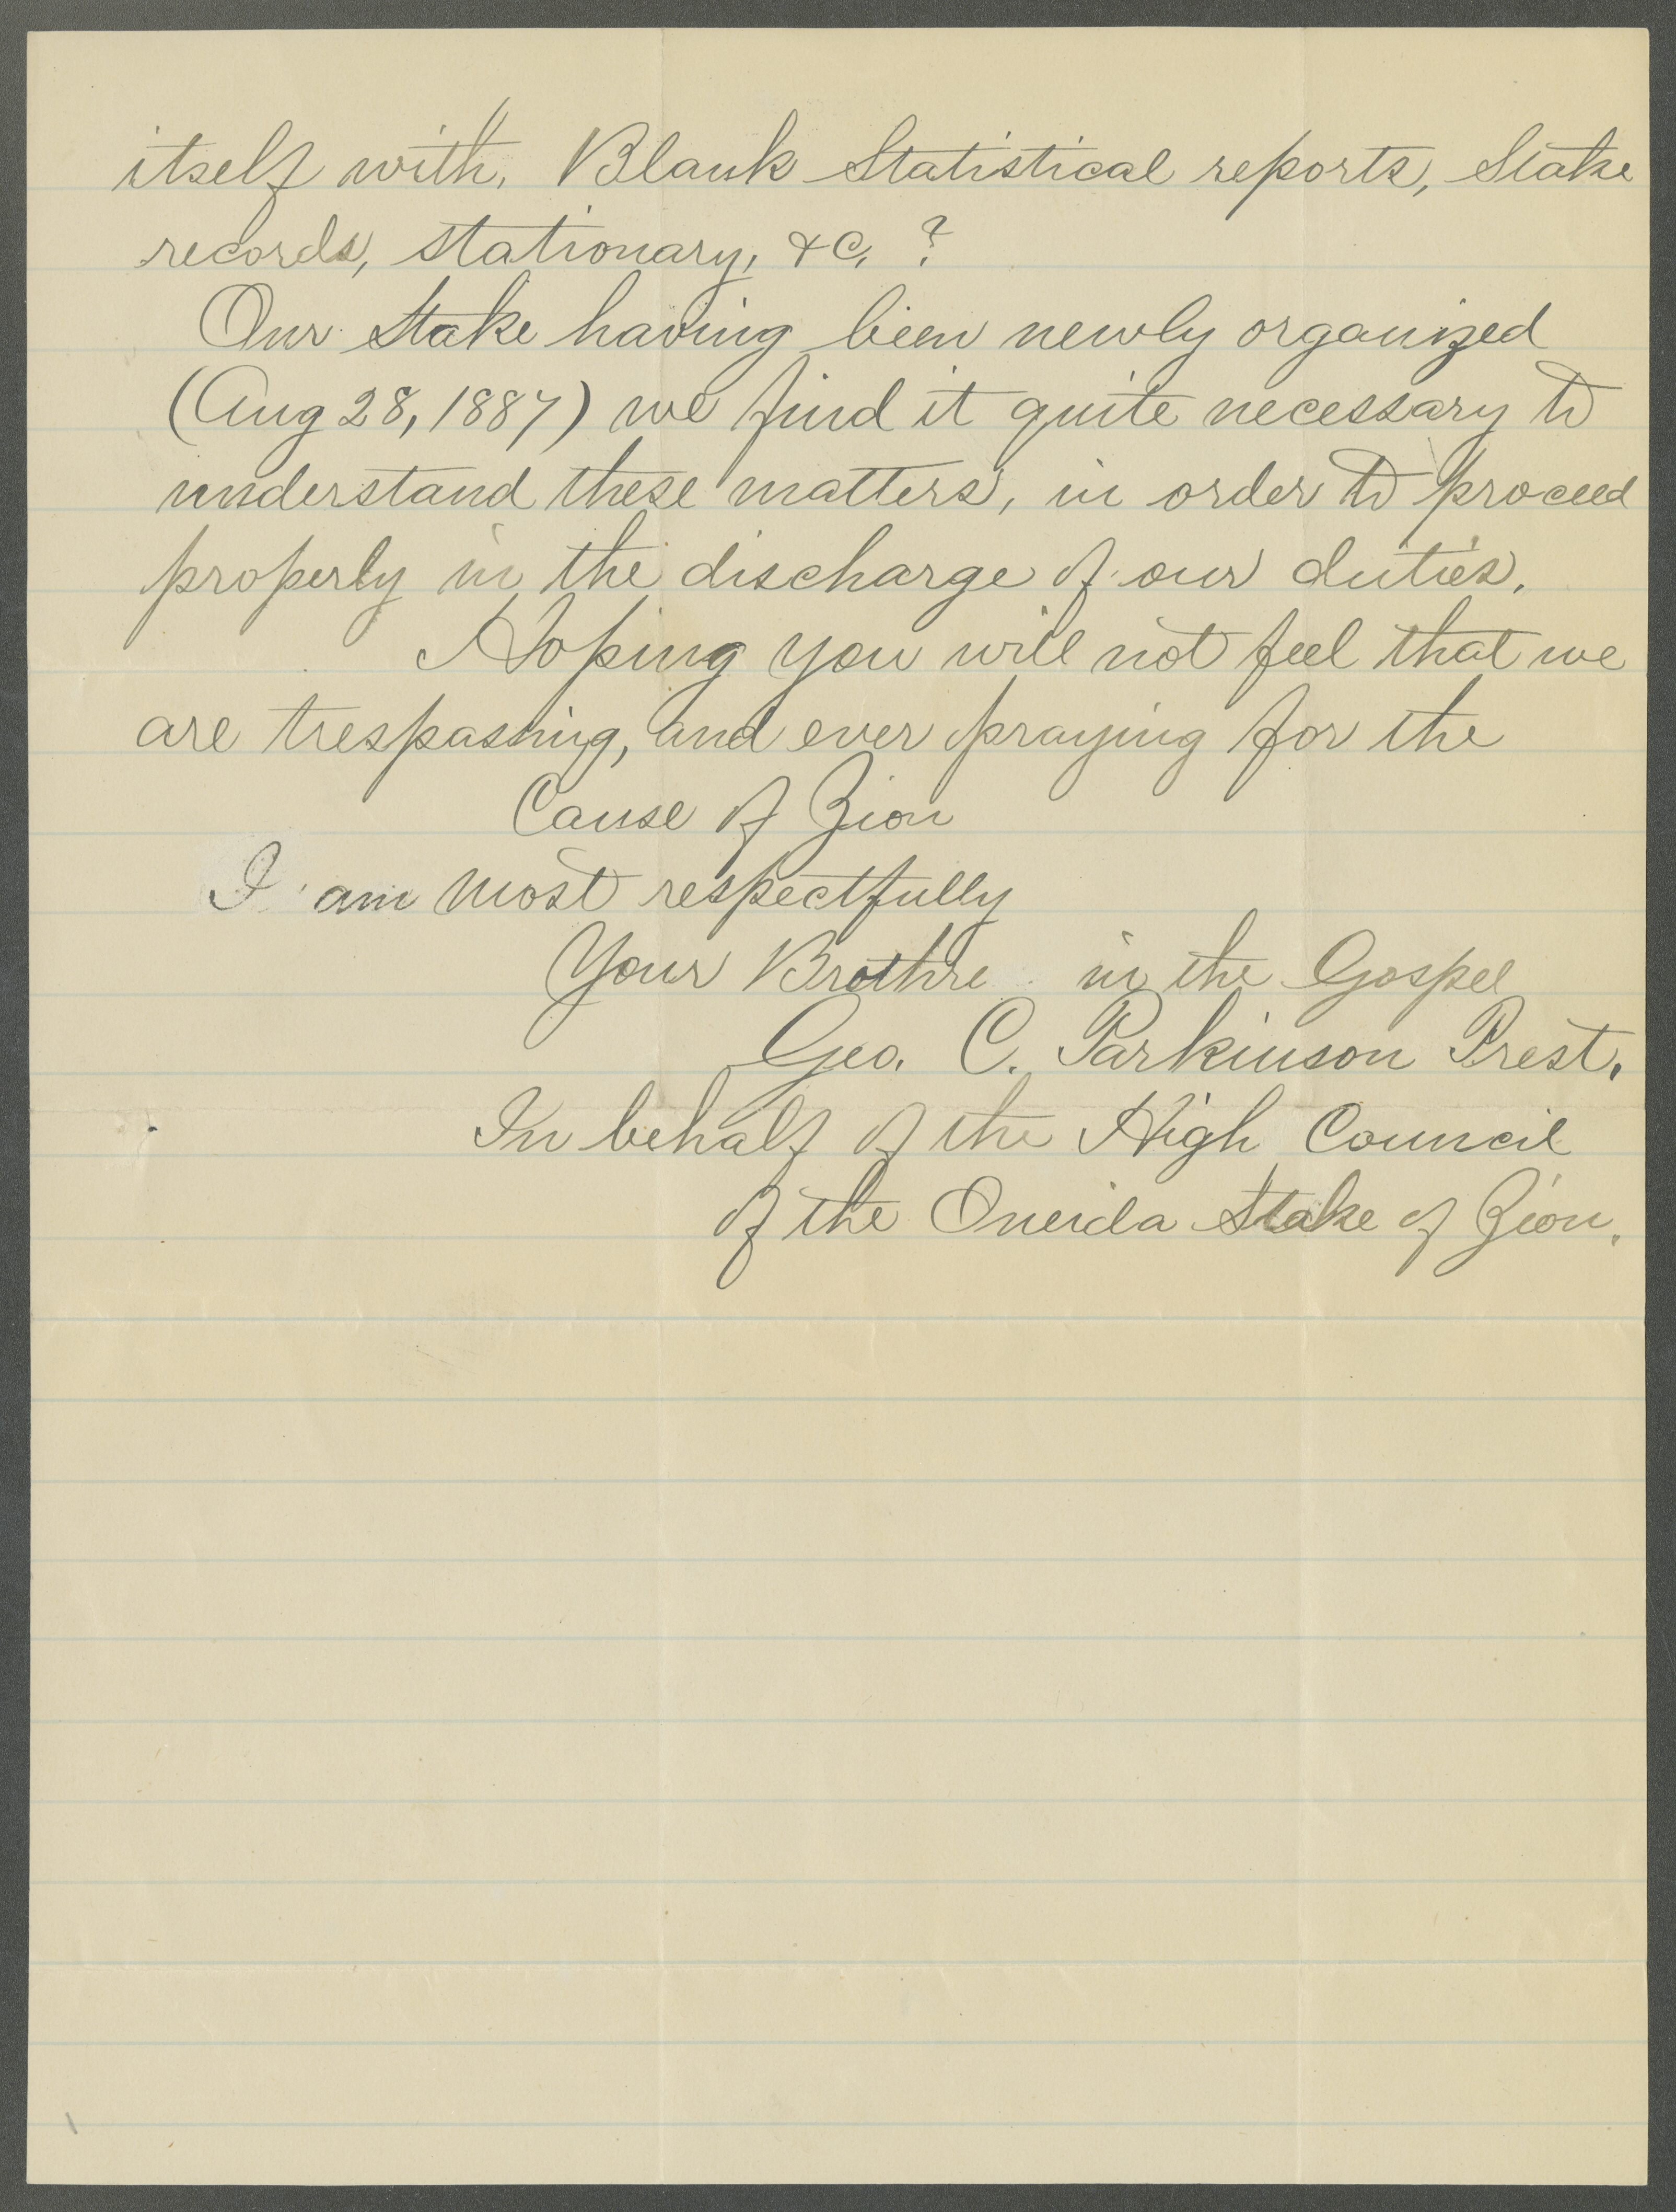 itself with, Blank Statistical reports, Stake
records, stationary, &c, ?
Our Stake having been newly organized
(Aug 28, 1887) we find it quite necessary to
understand these matters, in order to proceed
properly in the discharge of our duties.
Hoping you will not feel that we
are trespassing, and ever praying for the
Cause of Zion
I am most respectfully
Your Brothre in the Gospel
Geo. C. Parkinson Prest.
In behalf of the High Council
of the Oneida Stake of Zion.